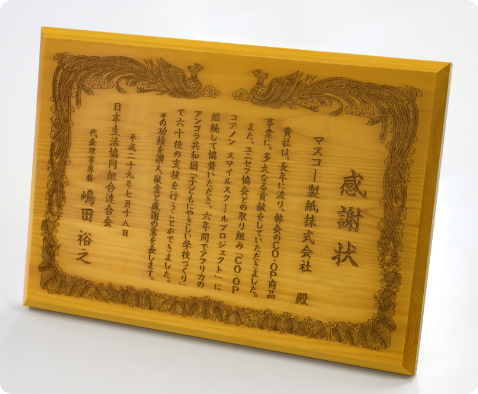 感謝状
マスコー製紙株式会社 殿
貴社は、長年に渡り、弊会のCO・OP商品
事業に、多大なる貢献をしていただきました。
また、ユニセフ協会との取り組み「CO・OP
コアノン スマイルスクールプロジェクト」に
継続して協賛いただき、六年間でアフリカの
アンゴラ共和国「子どもにやさしい学校づくり」
で六十校の支援を行うことができました。
その功績を讃え敬意と感謝の意を表します。
平成二十九年七月十八日
日本生活協同組合連合会
代表理事専務 嶋田裕之